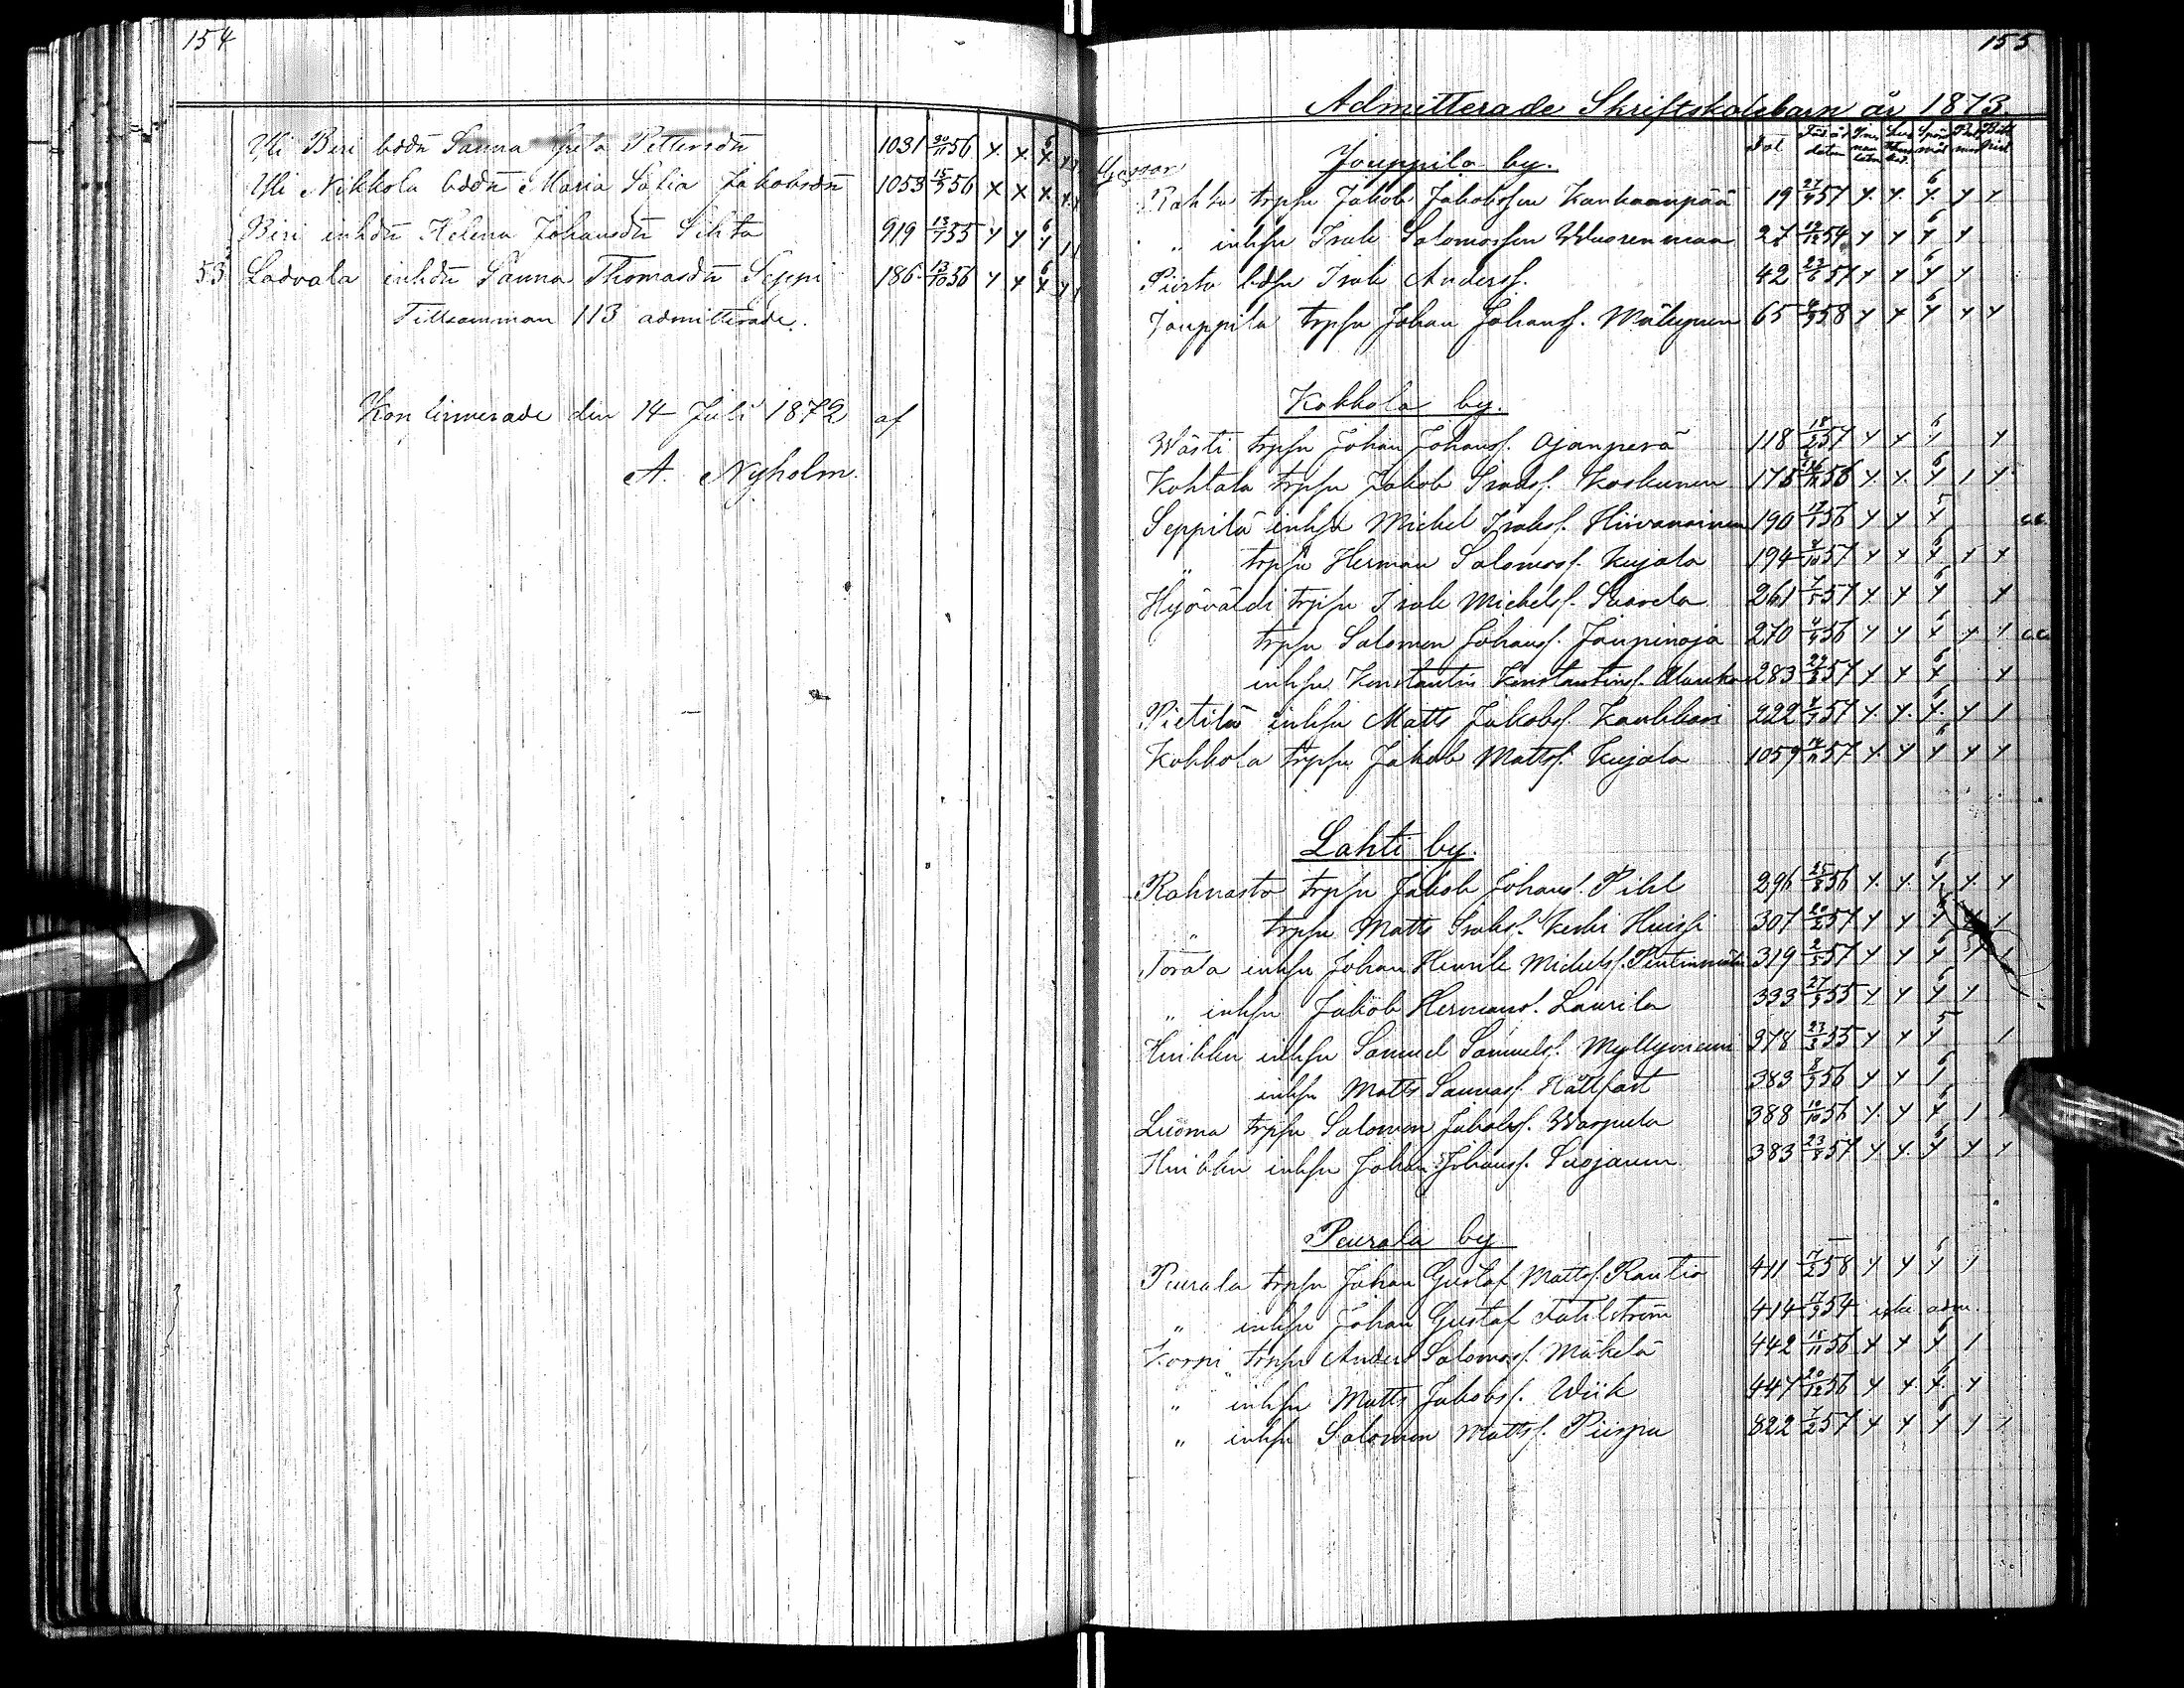 154
Yli Beri bddn Sanna Greta Pettersdn 1031 24/11 56 x. x. 6 x. x x
Yli Nikkola bddn Maria Sofia Jakobsdn 1053 15/5 56 x x x. x. x
Beri inhdn Helena Johansdn Sihto 919 13/7 55 x x 6 x 1 1
53 Ladvala inhdn Sanna Thomasdn Seppi 186. 13/10 56 x x 6 x x 1
Tillsamman 113 admitterade.
Konfirmerade den 14 Juli 1872 af
A. Nyholm.
155
Admitterade Skriftskolebarn år 1873.
Gossar
Jouppila by.
Rahko trpsn Jakob Jakobsson Kankaanpää 19 27/4 57 x. x. 6 x. x x
„ inhsn Isak Salomonsson Wuorenmaa 27 12/12 54 x x 6 x x
Piirto bdsn Isak Anderss. 42 23/6 57 x x 6 x x
Jouppila trpsn Johan Johanss. Mäkynen 65 4/3 58 x x 6 x x x
Kokkola by.
Wästi trpsn Johan Johanss. Ojanperä 118 18/2 57 x x 6 x x
Kohtala trpsn Jakob Isakss. Koskinen 175 56 x. x. 6 x 1 x
Seppilä inhsn Michel Isakss. Hiivanainen 190 17/1 56 x x 5 x c.c.
„ trpsn Herman Salomonss. Kujala 194 4/10 57 x x 6 x x x
Hyövälti trpsn Isak Michelss. Saarela 261 7/5 57 x x 6 x x
trpsn Salomon Johanss. Joupinoja 270 4/4 56 x x 6 x x 1 c.c.
inhsn Konstantin Konstantinss. 283 29/8 57 x x 6 x x
Pietilä inhsn Matts Jakobss. Kankkori 222 4/7 57 x. x. 6 x. x 1
Kokkola trpsn Jakob Mattss. Kujala 1059 14/11 57 x. x 6 x x x
Lahti by.
Rahnasto trpsn Jakob Johanss. Pihl 296 25/8 56 x. x. 6 x. x. x
„ trpsn Matts Isakss. Keski Huissi 307 20/2 57 x x 6 x x 1
Törälä inhsn Johan Henrik Michelss. Pentinmäki 319 2/5 57 x x 6 x 1 1
„ inhsn Jakob Hermanss. Laurila 333 27/3 55 x x 6 x 1
Huikku inhsn Samuel Samuelss. Myllyniemi 378 23/3 55 x x 5 x 1
inhsn Matts Sannass. Hållfast 383 8/3 56 x x 6 1
Luoma trpsn Salomon Jakobss. Warpula 388 10/10 56 x. x 6 x 1
Huikku inhsn Johan Johanss. Suojanen 383 23/8 57 x x. 6 x x x
Purala by.
Purala trpsn Johan Gustaf Mattss. Rautio 411 17/2 58 x x 6 x 1
„ inhsn Johan Gustaf Fahlström 414 17/3 54 icke adm.
Korpi trpsn Anders Salomonss. Mäkelä 442 18/11 56 x x 6 x 1
„ inhsn Matts Jakobss. Wiik 447 20/12 56 x x. 6 x. x
„ inhsn Salomon Mattss. Piispa 822 7/2 57 x x 6 x 1 1